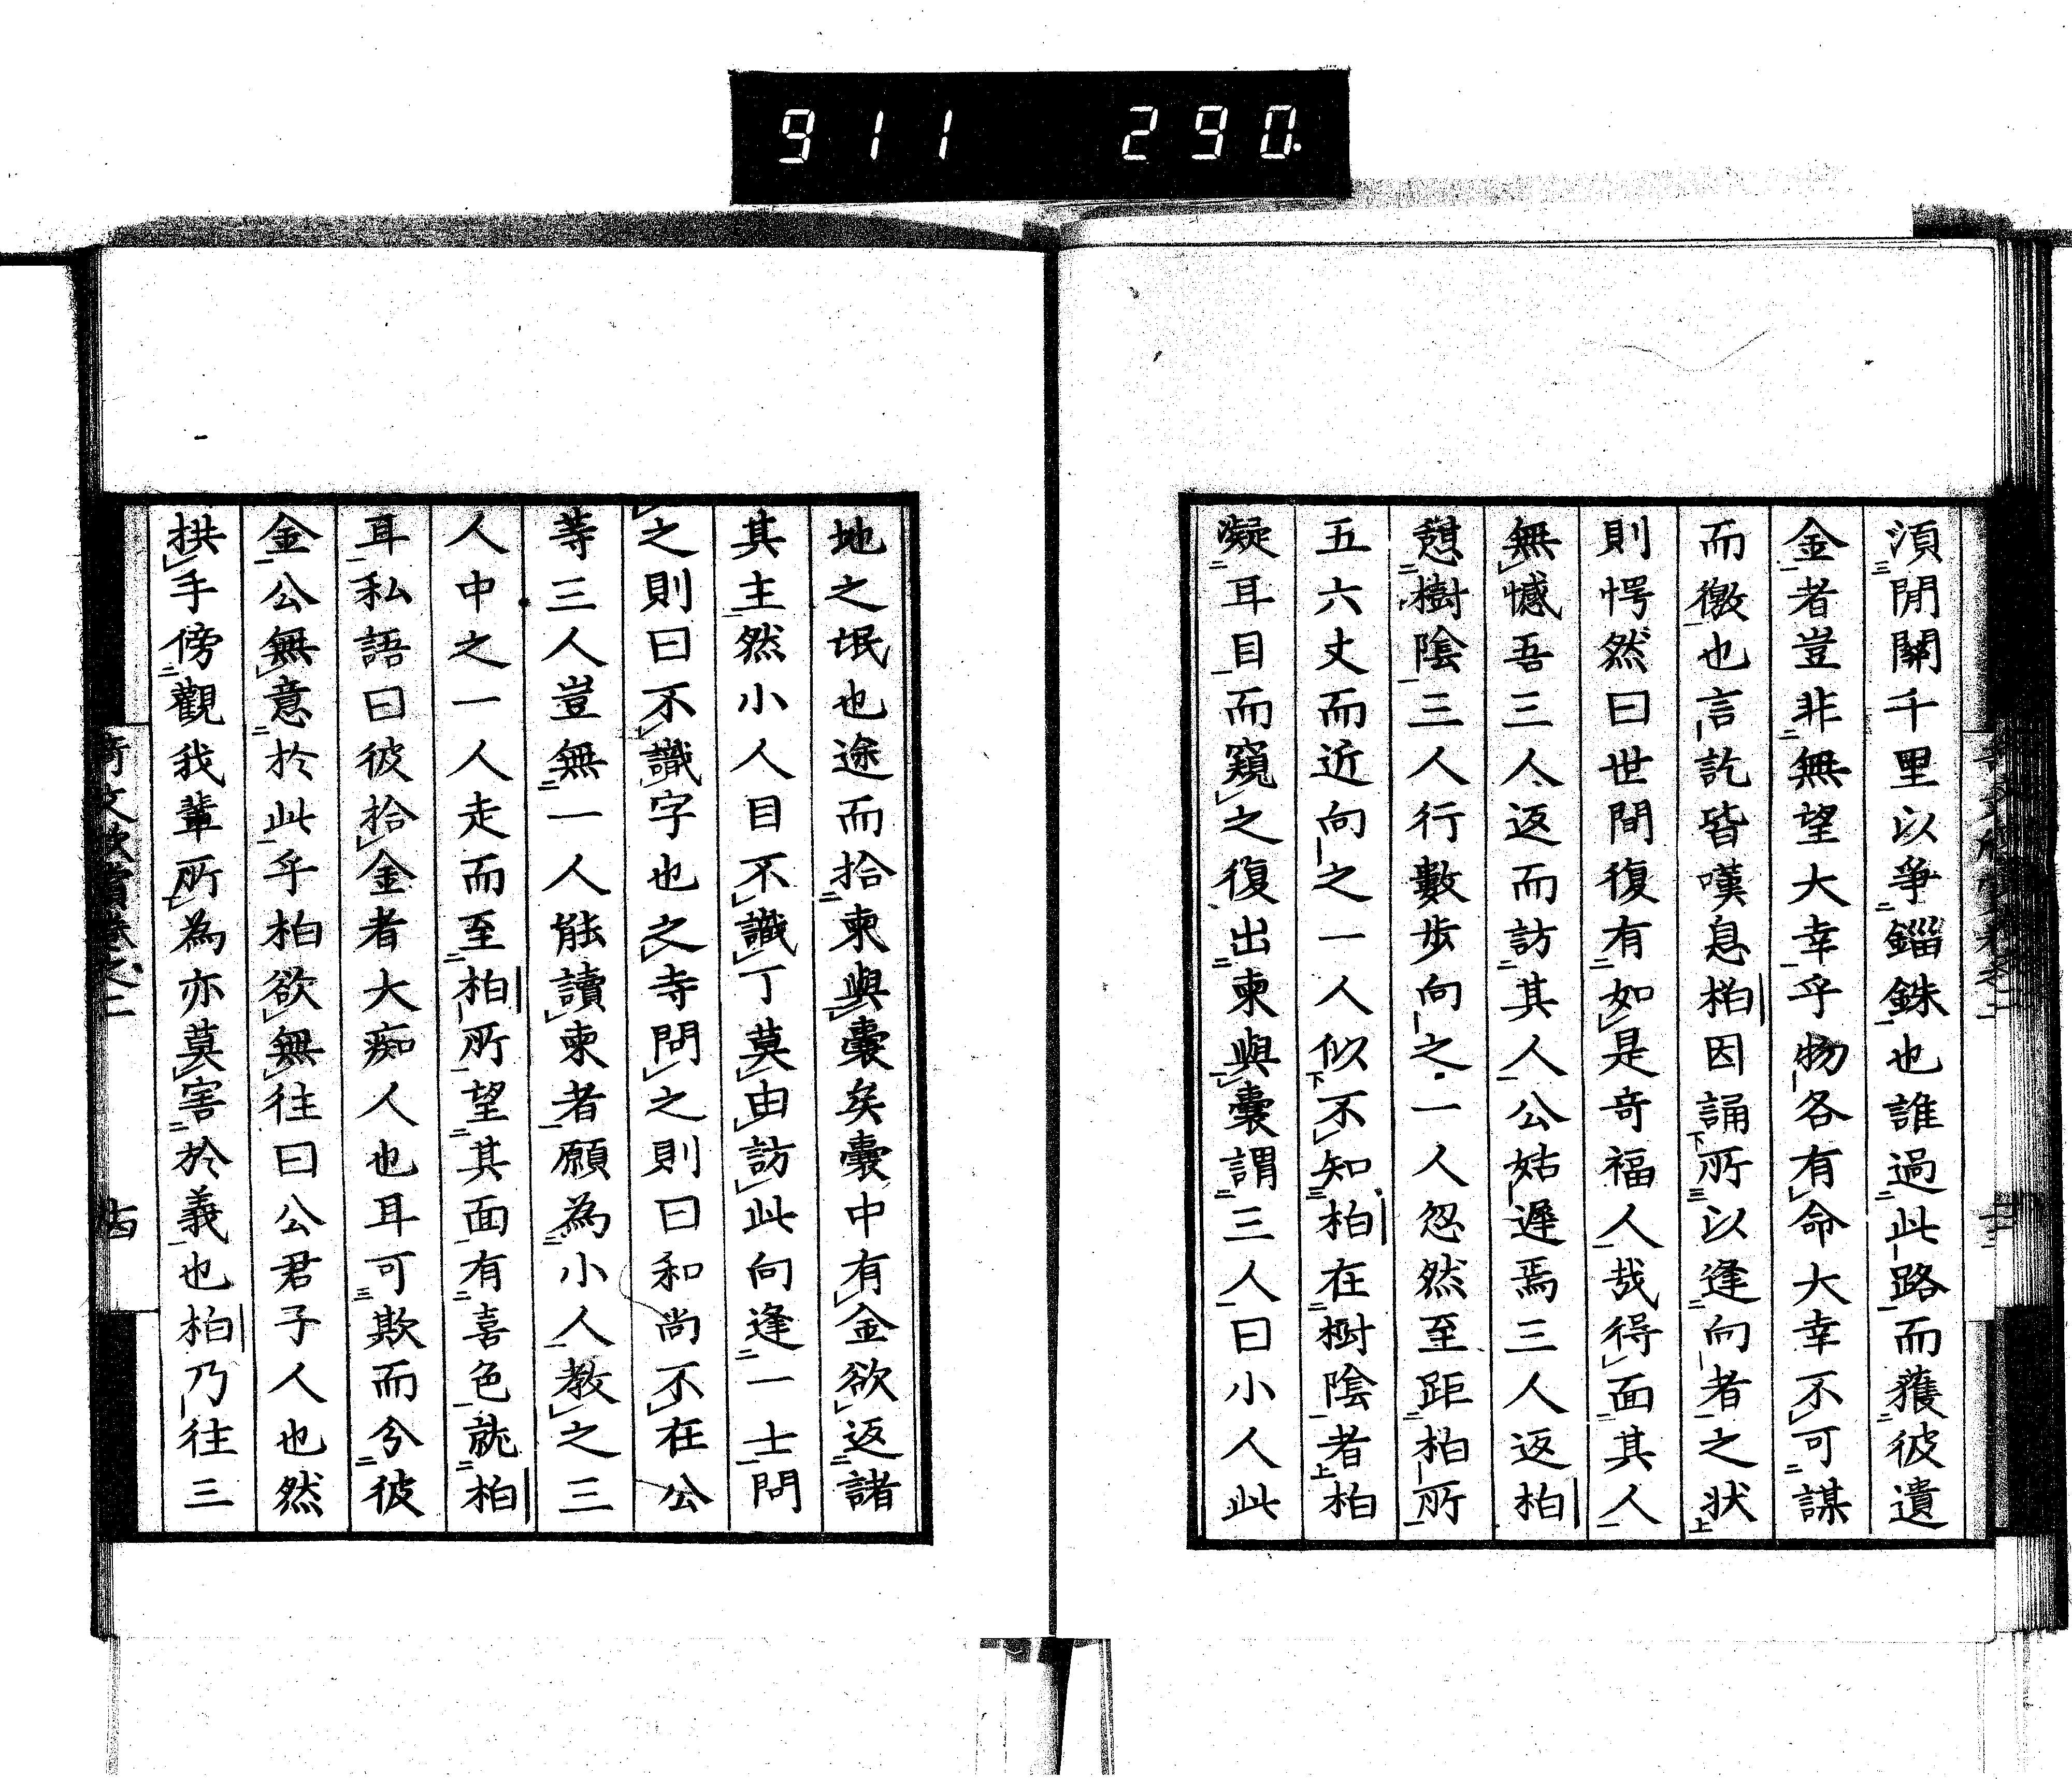 911 290
湏閒關千里以爭錙銖也誰過此路而獲彼遺
金者豈非無望大幸乎物各有命大幸不可謀
而徼也言訖皆嘆息栢因誦所以逢向者之状
則愕然曰世間復有如是奇福人哉得面其人
無憾吾三人返而訪其人公姑遲焉三人返栢
憇樹陰三人行數歩向之一人忽然至距栢所
五六丈而近向之一人似不知栢在樹陰者栢
凝耳目而窺之復出柬與囊謂三人曰小人此
地之氓也途而拾柬與囊矣囊中有金欲返諸
其主然小人目不識丁莫由訪此向逢一士問
之則曰不識字也之寺問之則曰和尚不在公
等三人豈無一人能讀柬者願為小人教之三
人中之一人走而至栢所望其面有喜色就栢
耳私語曰彼拾金者大痴人也耳可欺而分彼
金公無意於此乎栢欲無往曰公君子人也然
拱手傍觀我輩所為亦莫害於義也栢乃往三
卷之二